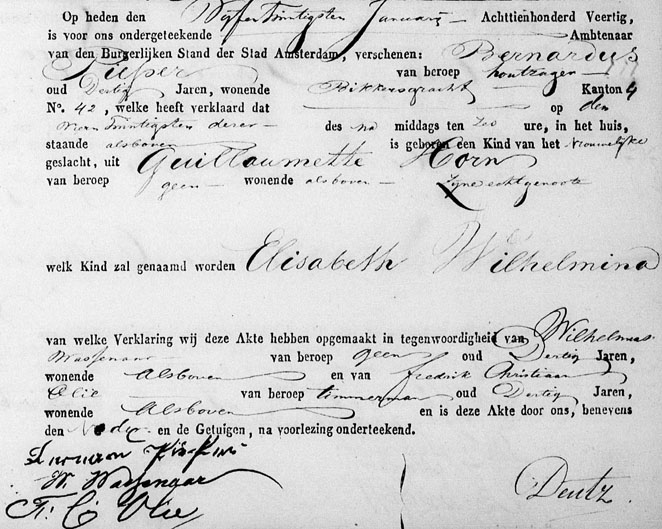 Op heden den Vijfentwintigsten Januarij Achttienhonderd Veertig,
is voor ons ondergeteekende Ambtenaar
van den Burgerlijken Stand der Stad Amsterdam, verschenen: Bernardus
Pieper van beroep houtzager
oud Dertig Jaren, wonende Bikkersgracht Kanton 4
No. 42, welke heeft verklaard dat op den
dezer des na middags ten ure, in het huis,
staande alsboven is geboren een Kind van het Vrouwelijke
geslacht, uit Guillaumette Horn
van beroep geen wonende alsboven Zijne echtgenoote
welk Kind zal genaamd worden Elisabeth Wilhelmina
van welke Verklaring wij deze Akte hebben opgemaakt in tegenwoordigheid van Wilhelmus
Wassenaar van beroep geen oud Dertig Jaren,
wonende Alsboven en van Fredrik Christiaan
Olie van beroep timmerman oud Dertig Jaren,
wonende Alsboven en is deze Akte door ons, benevens
den Vader en de Getuigen, na voorlezing onderteekend.
W. Wassenaar
F. C. Olie
Deutz